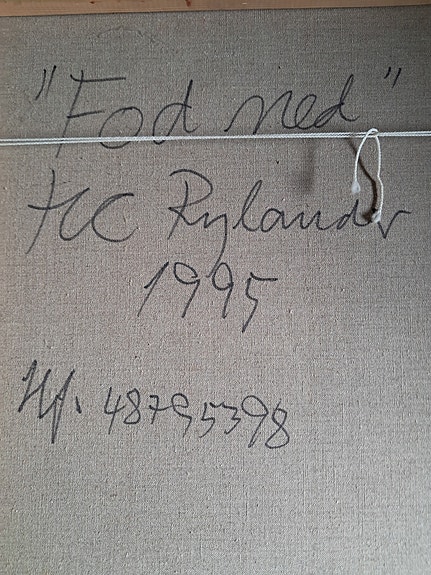 "Fod ned"
HC Rylander
1995
Tlf. 48795398